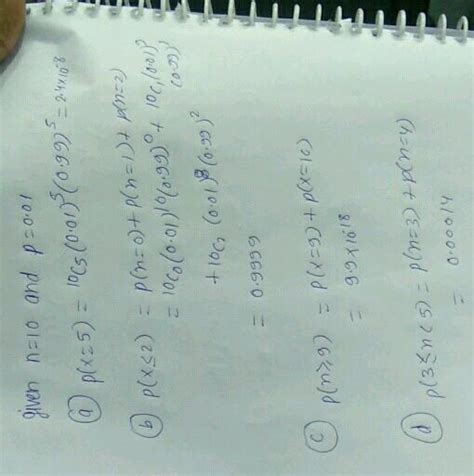 given n=10 and p=0.01
(a) p(x=5) = 10C5(0.01)^5(0.99)^5 = 2.4×10^-8
(b) p(x≤2) = p(n=0)+p(n=1)+p(n=2)
= 10C0(0.01)^10(0.99)^0 + 10C1(0.01)^9
(0.99)^1
+10C2 (0.01)^8(0.99)^2
= 0.9999
(c) p(n≥9) = p(x=9)+p(x=10)
= 99×10^18
(d) p(3≤n<5) = p(n=3)+p(n=4)
= 0.00014